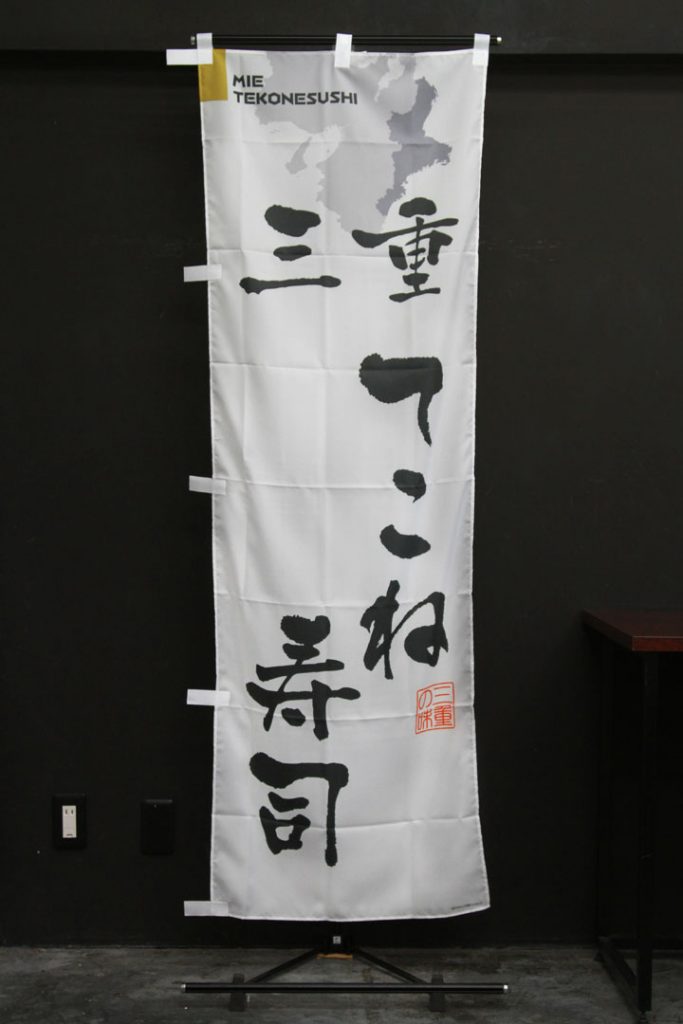 MIE
TEKONESUSHI
三
重てこね
寿司
三重
の味